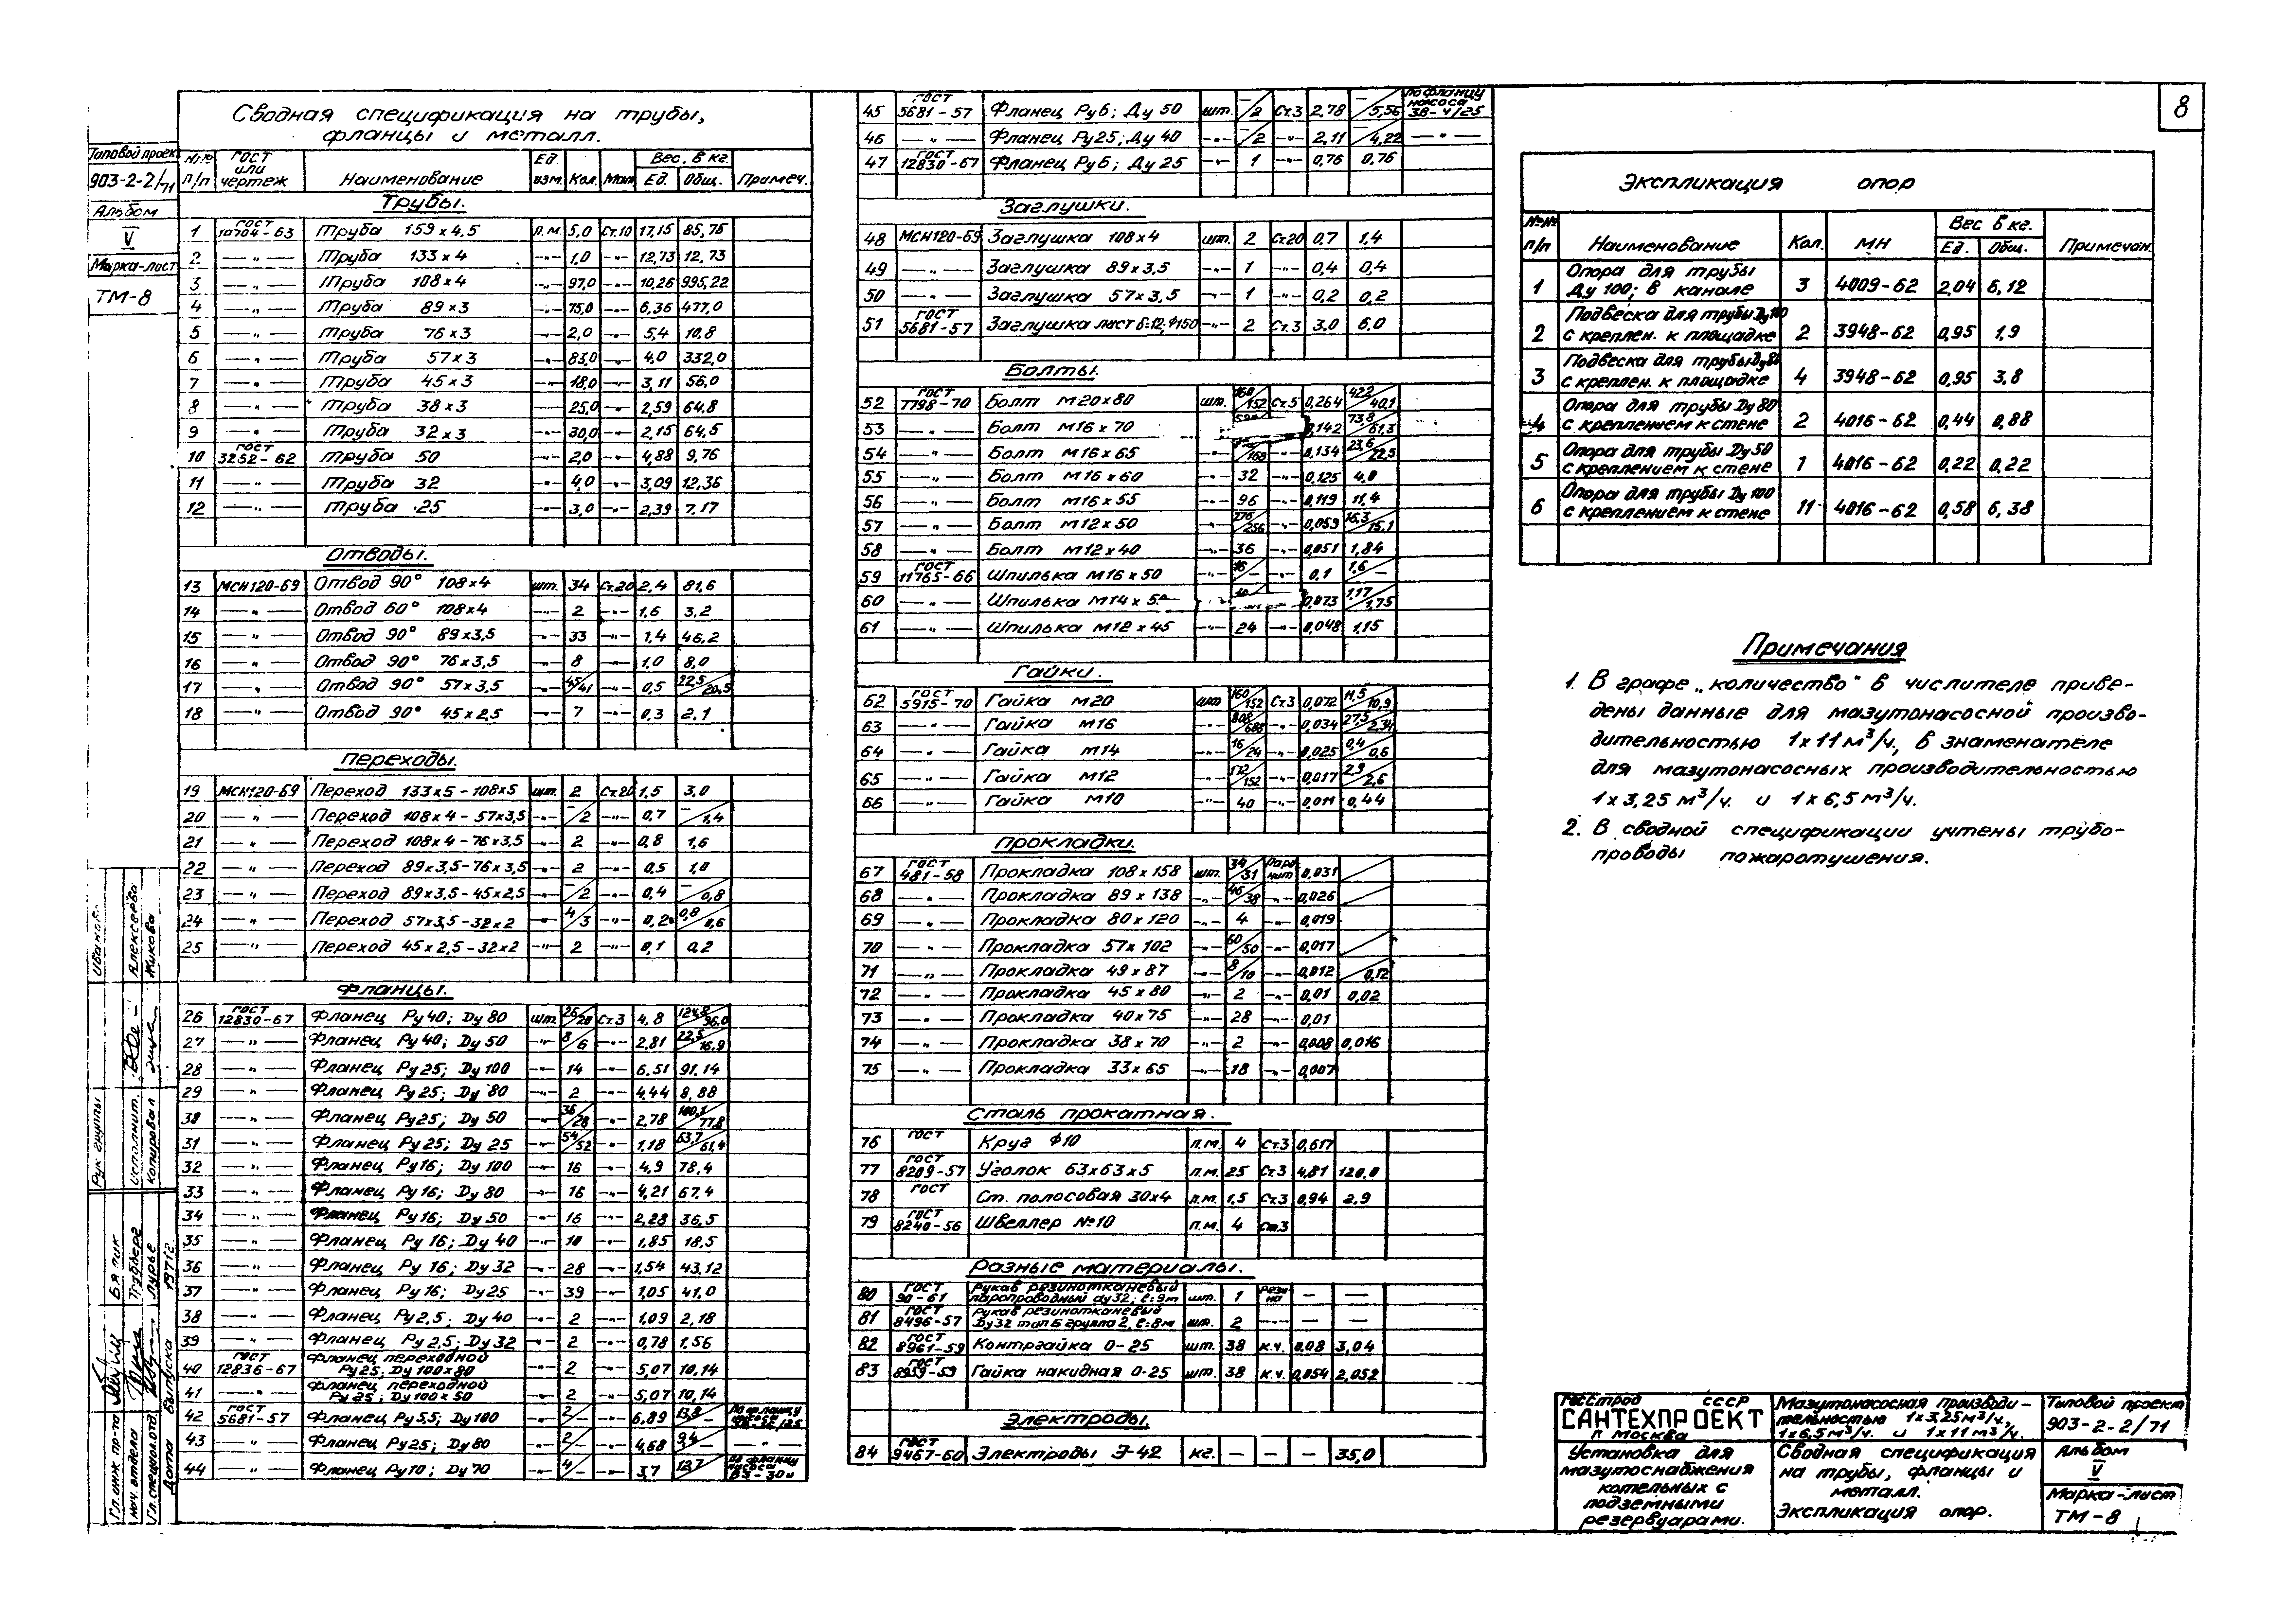 8
Типовой проект
903-2-2/71
Альбом
V
Марка-лист
ТМ-8
Сводная спецификация на трубы,
фланцы и металл.
№№ п/п ГОСТ или чертеж Наименование Ед. изм. Кол. Мат. Вес. в кг. Ед. Общ. Примеч.
Трубы.
1 ГОСТ 10704-63 Труба 159х4,5 п.м. 5,0 Ст.10 17,15 85,75
2 —"— Труба 133х4 —"— 1,0 —"— 12,73 12,73
3 —"— Труба 108х4 —"— 97,0 —"— 10,26 995,22
4 —"— Труба 89х3 —"— 75,0 —"— 6,36 477,0
5 —"— Труба 76х3 —"— 2,0 —"— 5,4 10,8
6 —"— Труба 57х3 —"— 83,0 —"— 4,0 332,0
7 —"— Труба 45х3 —"— 18,0 —"— 3,11 56,0
8 —"— Труба 38х3 —"— 25,0 —"— 2,59 64,8
9 —"— Труба 32х3 —"— 30,0 —"— 2,15 64,5
10 ГОСТ 3252-62 Труба 50 —"— 2,0 —"— 4,88 9,76
11 —"— Труба 32 —"— 4,0 —"— 3,09 12,36
12 —"— Труба 25 —"— 3,0 —"— 2,39 7,17
Отводы.
13 МСН120-69 Отвод 90° 108х4 шт. 34 Ст.20 2,4 81,6
14 —"— Отвод 60° 108х4 —"— 2 —"— 1,6 3,2
15 —"— Отвод 90° 89х3,5 —"— 33 —"— 1,4 46,2
16 —"— Отвод 90° 76х3,5 —"— 8 —"— 1,0 8,0
17 —"— Отвод 90° 57х3,5 —"— 45/41 —"— 0,5 22,5/20,5
18 —"— Отвод 90° 45х2,5 —"— 7 —"— 0,3 2,1
Переходы.
19 МСН120-69 Переход 133х5-108х5 шт. 2 Ст.20 1,5 3,0
20 —"— Переход 108х4-57х3,5 —"— –/2 —"— 0,7 –/1,4
21 —"— Переход 108х4-76х3,5 —"— 2 —"— 0,8 1,6
22 —"— Переход 89х3,5-76х3,5 —"— 2 —"— 0,5 1,0
23 —"— Переход 89х3,5-45х2,5 —"— –/2 —"— 0,4 –/0,8
24 —"— Переход 57х3,5-32х2 —"— 4/3 —"— 0,2 0,8/0,6
25 —"— Переход 45х2,5-32х2 —"— 2 —"— 0,1 0,2
Фланцы.
26 ГОСТ 12830-67 Фланец Ру40; Ду 80 шт. 26/20 Ст.3 4,8 124,8/96,0
27 —"— Фланец Ру40; Ду 50 —"— 8/6 —"— 2,81 22,5/16,9
28 —"— Фланец Ру25; Ду 100 —"— 14 —"— 6,51 91,14
29 —"— Фланец Ру25; Ду 80 —"— 2 —"— 4,44 8,88
30 —"— Фланец Ру25; Ду 50 —"— 36/28 —"— 2,78 /77,8
31 —"— Фланец Ру25; Ду 25 —"— 54/52 —"— 1,18 63,7/61,4
32 —"— Фланец Ру16; Ду 100 —"— 16 —"— 4,9 78,4
33 —"— Фланец Ру16; Ду 80 —"— 16 —"— 4,21 67,4
34 —"— Фланец Ру16; Ду 50 —"— 16 —"— 2,28 36,5
35 —"— Фланец Ру 16; Ду 40 —"— 10 —"— 1,85 18,5
36 —"— Фланец Ру 16; Ду 32 —"— 28 —"— 1,54 43,12
37 —"— Фланец Ру 16; Ду25 —"— 39 —"— 1,05 41,0
38 —"— Фланец Ру2,5; Ду 40 —"— 2 —"— 1,09 2,18
39 —"— Фланец Ру 2,5; Ду 32 —"— 2 —"— 0,78 1,56
40 ГОСТ 12836-67 Фланец переходной Ру25; Ду 100х80 —"— 2 —"— 5,07 10,14
41 —"— Фланец переходной Ру25; Ду100х50 —"— 2 —"— 5,07 10,14
42 ГОСТ 5681-57 Фланец Ру5,5; Ду100 —"— 2/– —"— 6,89 13,8/– По фланцу насоса
43 —"— Фланец Ру25; Ду80 —"— 2/– —"— 4,68 9,4/– —"—
44 —"— Фланец Ру10; Ду 70 —"— 4/– —"— 3,7 По фланцу насоса
45 ГОСТ 5681-57 Фланец Ру6; Ду 50 шт. –/2 Ст.3 2,78 –/5,56 По фланцу насоса 38-4/25
46 —"— Фланец Ру25; Ду 40 —"— –/2 —"— 2,11 –/4,22 —"—
47 ГОСТ 12830-67 Фланец Ру6; Ду 25 —"— 1 —"— 0,76 0,76
Заглушки.
48 МСН120-69 Заглушка 108х4 шт. 2 Ст20 0,7 1,4
49 —"— Заглушка 89х3,5 —"— 1 —"— 0,4 0,4
50 —"— Заглушка 57х3,5 —"— 1 —"— 0,2 0,2
51 ГОСТ 5681-57 Заглушка лист б=12; Ф150 —"— 2 Ст.3 3,0 6.0
Болты.
52 ГОСТ 7798-70 Болт М20х80 шт. 160/152 Ст.5 0,264 42,2/40,1
53 —"— Болт М16х70 0,142 73,8/61,3
54 —"— Болт М16х65 /168 —"— 0,134 23,6/22,5
55 —"— Болт М16х60 —"— 32 —"— 0,125 4,0
56 —"— Болт М16х55 —"— 96 —"— 0,119 11,4
57 —"— Болт М12х50 —"— 276/256 —"— 0,059 16,3/15,1
58 —"— Болт М12х40 —"— 36 —"— 0,051 1,84
59 ГОСТ 11765-66 Шпилька М16х50 —"— 16/– —"— 0,1 1,6/–
60 —"— Шпилька М14х5 0,073 1,17/1,75
61 —"— Шпилька М12х45 —"— 24 —"— 0,048 1,15
Гайки.
62 ГОСТ 5915-70 Гайка М20 шт 160/152 Ст.3 0,072 11,5/10,9
63 —"— Гайка М16 —"— 808/688 —"— 0,034 27,5/2,34
64 —"— Гайка М14 —"— 16/24 —"— 0,025 0,4/0,6
65 —"— Гайка М12 —"— 172/152 —"— 0,017 2,9/2,6
66 —"— Гайка М10 —"— 40 —"— 0,011 0,44
Прокладки.
67 ГОСТ 481-58 Прокладка 108х158 шт. 34/31 Паронит 0,031
68 —"— Прокладка 89х138 —"— 46/38 —"— 0,026
69 —"— Прокладка 80х120 —"— 4 —"— 0,019
70 —"— Прокладка 57х102 —"— 60/50 —"— 0,017
71 —"— Прокладка 49х87 —"— 8/10 —"— 0,012 /0,12
72 —"— Прокладка 45х80 —"— 2 —"— 0,01 0,02
73 —"— Прокладка 40х75 —"— 28 —"— 0,01
74 —"— Прокладка 38х70 —"— 2 —"— 0,008 0,016
75 —"— Прокладка 33х65 —"— 18 —"— 0,007
Сталь прокатная.
76 ГОСТ Круг Ф10 п.м. 4 Ст.3 0,617
77 ГОСТ 8209-57 Уголок 63х63х5 п.м. 25 Ст.3 4,81 120,0
78 ГОСТ Ст. полосовая 30х4 п.м. 1,5 Ст.3 0,94 2,9
79 ГОСТ 8240-56 Швеллер №10 п.м. 4 Ст.3
Разные материалы.
80 ГОСТ 90-61 Рукав резинотканевый паропроводный ду32; ℓ=9м шт. 1 Резина — —
81 ГОСТ 8496-57 Рукав резинотканевый Ду32 тип Б группа 2, ℓ=8м шт. 2 —"— — —
82 ГОСТ 8961-59 Контргайка О-25 шт. 38 к.ч. 0,08 3,04
83 ГОСТ 8959-59 Гайка накидная О-25 шт. 38 к.ч. 0,054 2,052
Электроды.
84 ГОСТ 9467-60 Электроды Э-42 кг. — — — 35,0
Экспликация опор
№№ п/п Наименование Кол. МН Вес в кг. Ед. Общ. Примечан.
1 Опора для трубы Ду 100; в канале 3 4009-62 2,04 6,12
2 Подвеска для трубы Ду100 с креплен. к площадке 2 3948-62 0,95 1,9
3 Подвеска для трубы Ду80 с креплен. к площадке 4 3948-62 0,95 3,8
4 Опора для трубы Ду 80 с креплением к стене 2 4016-62 0,44 0,88
5 Опора для трубы Ду 50 с креплением к стене 1 4016-62 0,22 0,22
6 Опора для трубы Ду 100 с креплением к стене 11 4016-62 0,58 6,38
Примечания
1. В графе „количество" в числителе приве-
дены данные для мазутонасосной произво-
дительностью 1х11 м³/ч., в знаменателе
для мазутонасосных производительностью
1х3,25 м³/ч. и 1х6,5 м³/ч.
2. В сводной спецификации учтены трубо-
проводы пожаротушения.
Госстрой СССР
САНТЕХПРОЕКТ
г. Москва
Установка для
мазутоснабжения
котельных с
подземными
резервуарами.
Мазутонасосная производи-
тельностью 1х3,25м³/ч.,
1х6,5м³/ч. и 1х11м³/ч.
Сводная спецификация
на трубы, фланцы и
металл.
Экспликация опор.
Типовой проект
903-2-2/71
Альбом
V
Марка-лист
ТМ-8
Рук группы
Исполнит. Алексеева
Копировал Жикова
Гл. инж пр-та
Нач. отдела
Гл. специал. отд. Лурье
Дата выпуска 1971г.